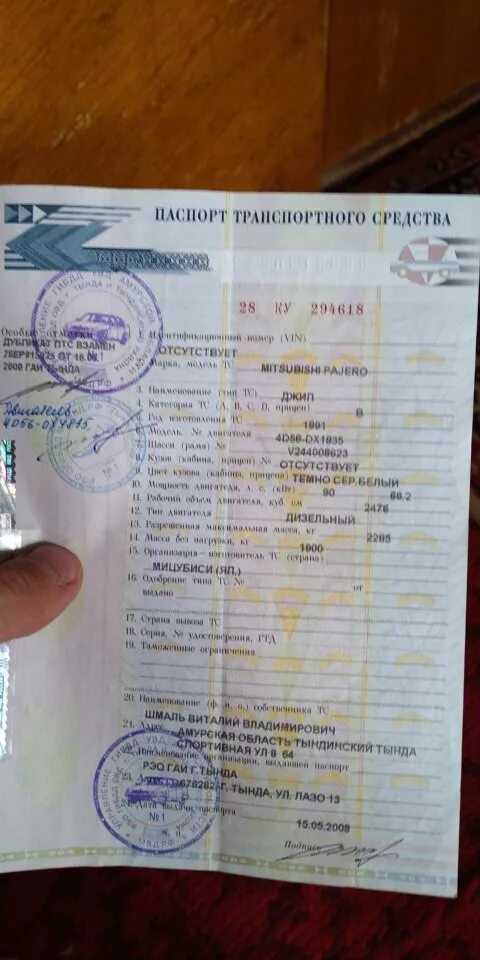 ПАСПОРТ ТРАНСПОРТНОГО СРЕДСТВА
28 КУ 294618
Особые отметки
ДУБЛИКАТ ПТС ВЗАМЕН
2000 ГАИ ТЫНДА
Двигатель
1. Идентификационный номер (VIN)
ОТСУТСТВУЕТ
2. Марка, модель ТС
MITSUBISHI PAJERO
3. Наименование (тип ТС)
ДЖИП
4. Категория ТС (A, B, C, D, прицеп)
B
5. Год изготовления ТС
1991
6. Модель, № двигателя
4D56-DX1935
7. Шасси (рама) №
V244008623
8. Кузов (кабина, прицеп) №
ОТСУТСТВУЕТ
9. Цвет кузова (кабины, прицепа)
ТЕМНО СЕР.БЕЛЫЙ
10. Мощность двигателя, л. с. (кВт)
90 66.2
11. Рабочий объем двигателя, куб. см
2476
12. Тип двигателя
ДИЗЕЛЬНЫЙ
13. Разрешенная максимальная масса, кг
2295
14. Масса без нагрузки, кг
1900
15. Организация-изготовитель ТС (страна)
МИЦУБИСИ (ЯП.)
16. Одобрение типа ТС № от
выдано
17. Страна вывоза ТС
18. Серия, № удостоверения, ГТД
19. Таможенные ограничения
20. Наименование (ф. и. о.) собственника ТС
ШМАЛЬ ВИТАЛИЙ ВЛАДИМИРОВИЧ
21. Адрес
АМУРСКАЯ ОБЛАСТЬ ТЫНДИНСКИЙ ТЫНДА
СПОРТИВНАЯ УЛ 9 64
22. Наименование организации, выдавшей паспорт
РЭО ГАИ Г.ТЫНДА
23. Адрес
Г. ТЫНДА, УЛ. ЛАЗО 13
24. Дата выдачи паспорта
15.05.2008
Подпись
№1